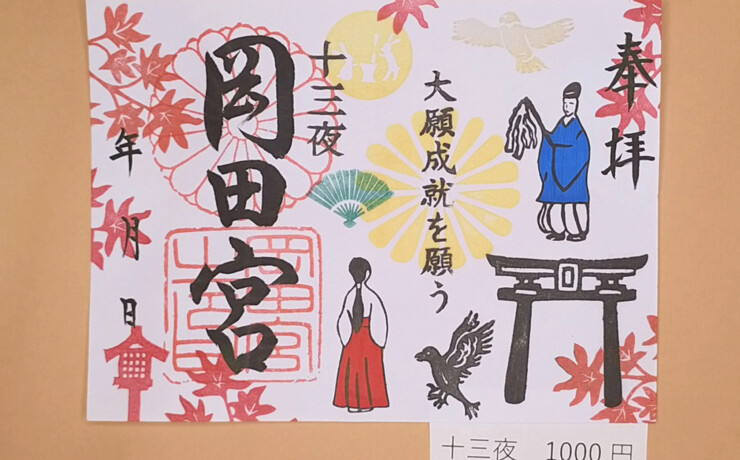 奉拝
大願成就を願う
十三夜
岡田宮
年月日
十三夜 1000円